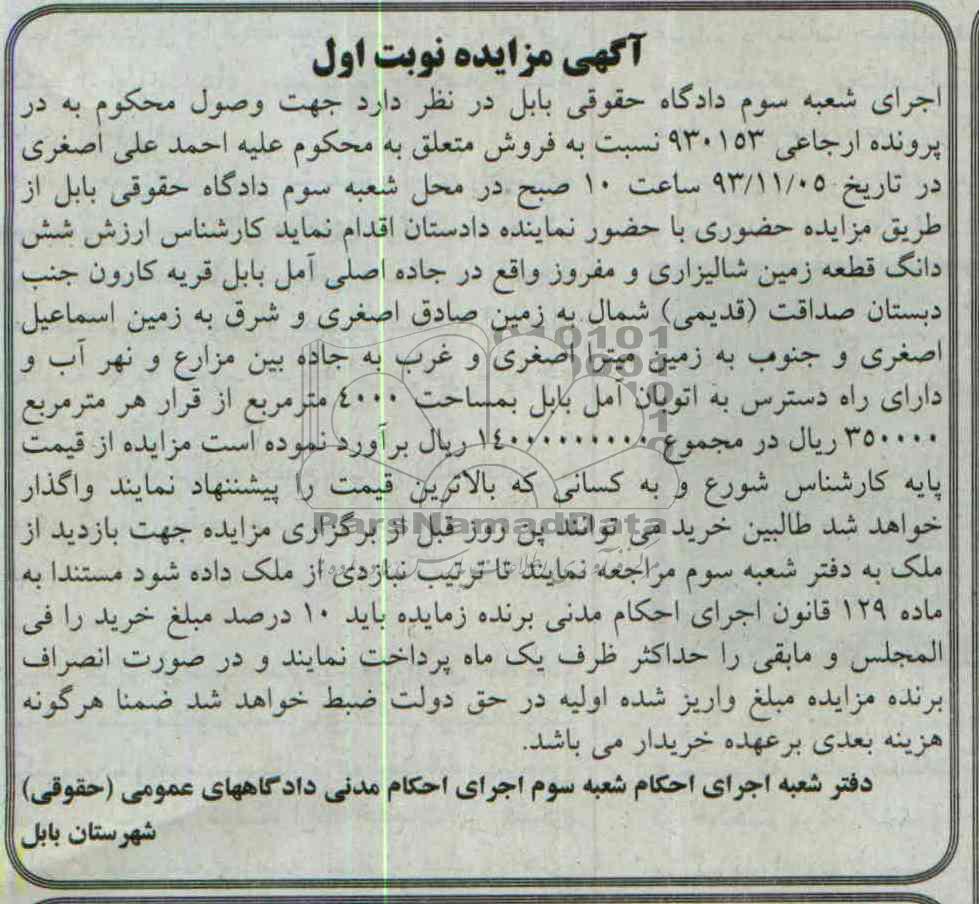 آگهی مزایده نوبت اول
اجرای شعبه سوم دادگاه حقوقی بابل در نظر دارد جهت وصول محکوم به در
پرونده ارجاعی ۹۳۰۱۵۳ نسبت به فروش متعلق به محکوم علیه احمد علی اصغری
در تاریخ ۹۳/۱۱/۰۵ ساعت ۱۰ صبح در محل شعبه سوم دادگاه حقوقی بابل از
طریق مزایده حضوری با حضور نماینده دادستان اقدام نماید کارشناس ارزش شش
دانگ قطعه زمین شالیزاری و مفروز واقع در جاده اصلی آمل بابل قریه کارون جنب
دبستان صداقت (قدیمی) شمال به زمین صادق اصغری و شرق به زمین اسماعیل
اصغری و جنوب به زمین میتن اصغری و غرب به جاده بین مزارع و نهر آب و
دارای راه دسترس به اتوبان آمل بابل بمساحت ۴۰۰۰ مترمربع از قرار هر مترمربع
۳۵۰۰۰۰ ریال در مجموع ۱۴۰۰۰۰۰۰۰۰۰ ریال برآورد نموده است مزایده از قیمت
پایه کارشناس شورع و به کسانی که بالاترین قیمت را پیشننهاد نمایند واگذار
خواهد شد طالبین خرید می توانند پن روز قبل از برگزاری مزایده جهت بازدید از
ملک به دفتر شعبه سوم مراجعه نمایند تا ترتیب نبازدی از ملک داده شود مستندا به
ماده ۱۲۹ قانون اجرای احکام مدنی برنده زمایده باید ۱۰ درصد مبلغ خرید را فی
المجلس و مابقی را حداکثر ظرف یک ماه پرداخت نمایند و در صورت انصراف
برنده مزایده مبلغ واریز شده اولیه در حق دولت ضبط خواهد شد ضمنا هرگونه
هزینه بعدی برعهده خریدار می باشد.
دفتر شعبه اجرای احکام شعبه سوم اجرای احکام مدنی دادگاههای عمومی (حقوقی)
شهرستان بابل
ParsNamadData